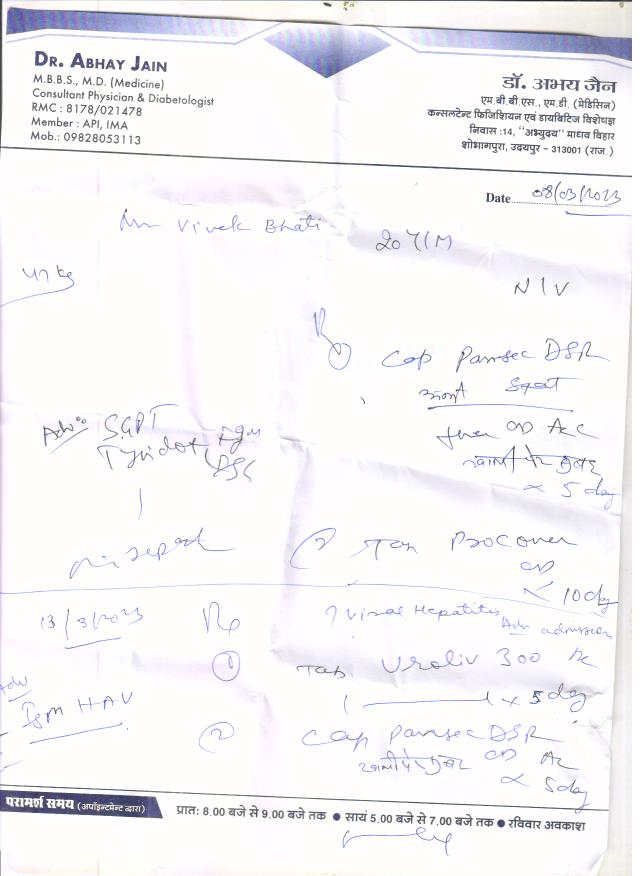 DR. ABHAY JAIN
M.B.B.S., M.D. (Medicine)
Consultant Physician & Diabetologist
RMC : 8178/021478
Member : API, IMA
Mob.: 09828053113
डॉ. अभय जैन
एम.बी.बी.एस., एम.डी. (मेडिसिन)
कन्सलटेन्ट फिजिशियन एवं डायबिटिज विशेषज्ञ
निवास :14, "अभ्युदय" माधव विहार
शोभागपुरा, उदयपुर – 313001 (राज.)
Date 08/03/2023
Mr Vivek Bhati 20 Y/M
47 kg
Cap Pansec DSR
OD AC
खाली पेट सुबह
x 5 day
Adv: SGPT
Typhidot IgM
Tab
OD
x 10 day
13/3/2023
Rx
? Viral Hepatitis
Adv admission
Tab Uroliv 300
1 x 5 day
Adv
IgM HAV
Cap Pansec DSR
खाली पेट सुबह OD AC
x 5 day
परामर्श समय (अपॉइन्टमेन्ट द्वारा)
प्रात: 8.00 बजे से 9.00 बजे तक ● सायं 5.00 बजे से 7.00 बजे तक ● रविवार अवकाश